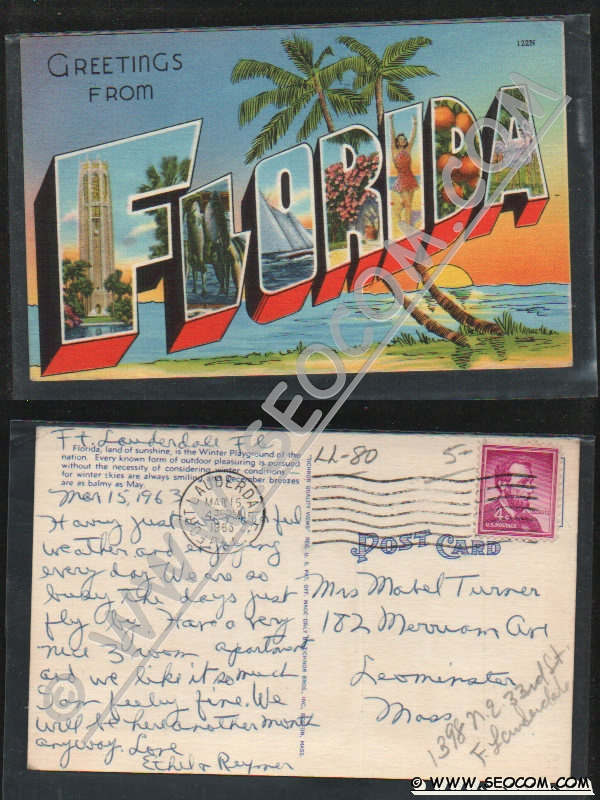 GREETINGS
FROM
122N
FLORIDA
© WWW.SEOCOM.COM
Ft. Lauderdale Fl
Florida, land of sunshine, is the Winter Playground of the
nation. Every known form of outdoor pleasuring is pursued
without the necessity of considering winter conditions,—
for winter skies are always smiling and December breezes
are as balmy as May.
Mar 15, 1963
Having just
weather and enjoying
every day. We are so
busy the days just
fly by. Have a very
nice 3 room apartment
and we like it so much
I am feeling fine. We
will be here another month
anyway. Love
Ethel & Reymer
FORT LAUDERDALE
MAR 15
1963
FLA.
LL-80
5-
4¢
U.S. POSTAGE
POST CARD
Mrs Mabel Turner
182 Merriam Ave
Leominster
Mass
1398 N.E 33rd St.
F Lauderdale
TICHNOR BROS., INC., BOSTON, MASS.
© WWW.SEOCOM.COM